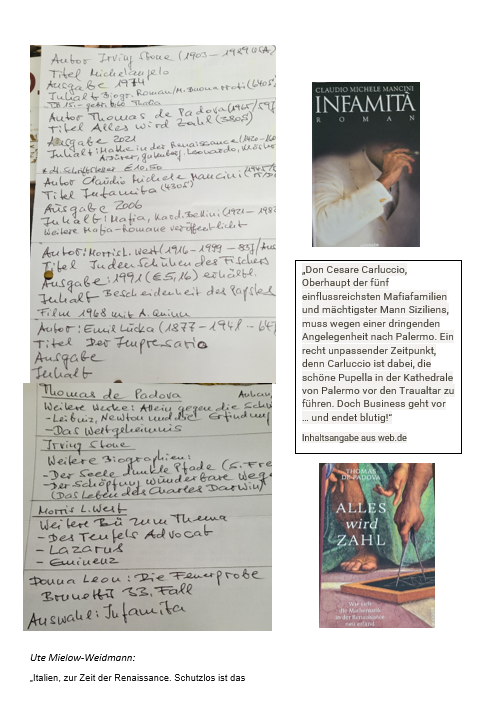 Autor Irving Stone (1903 - 1989 USA)
Titel Michelangelo
Ausgabe 1974
Inhalt Biogr. Roman/M. Buonarroti (640S)
TB 15.- gebr. 6,60
Autor Thomas de Padova (1965/59J
Titel Alles wird Zahl (380S)
Ausgabe 2021
Inhalt: Mathe in der Renaissance
Dürer, Gutenberg, Leonardo,
€ 10,50
Autor Claudio Michele Mancini
Titel Infamita (430S)
Ausgabe 2006
Inhalt: Mafia, Kard. Bellini (1921 - 198
Weitere Mafia-Romane veröffentlicht
Autor: Morris L. West (1916 - 1999 - 83J/Aus
Titel In den Schuhen des Fischers
Ausgabe: 1991 (€5,16) erhältl.
Inhalt Bescheidenheit des Papstes
Film 1968 mit A. Quinn
Autor: Emil Lucka (1877 - 1941 - 64J
Titel Der Impresario
Ausgabe
Inhalt
Thomas de Padova
Weitere Werke: Allein gegen die
- Leibniz, Newton und die Erfindung
- Das Weltgeheimnis
Irving Stone
Weitere Biographien:
- Der Seele dunkle Pfade (S. Fre
- Der Schöpfung wunderbare Wege
(Das Leben des Charles Darwin)
Morris L. West
Weitere Bü zum Thema
- Des Teufels Advocat
- Lazarus
- Eminenz
Donna Leon: Die Feuerprobe
Brunettis 33. Fall
Auswahl: Infamita
CLAUDIO MICHELE MANCINI
INFAMITÀ
ROMAN
„Don Cesare Carluccio,
Oberhaupt der fünf
einflussreichsten Mafiafamilien
und mächtigster Mann Siziliens,
muss wegen einer dringenden
Angelegenheit nach Palermo. Ein
recht unpassender Zeitpunkt,
denn Carluccio ist dabei, die
schöne Pupella in der Kathedrale
von Palermo vor den Traualtar zu
führen. Doch Business geht vor
... und endet blutig!“
Inhaltsangabe aus web.de
THOMAS
DE PADOVA
ALLES
wird
ZAHL
Wie sich
die Mathematik
in der Renaissance
neu erfand
Ute Mielow-Weidmann:
„Italien, zur Zeit der Renaissance. Schutzlos ist das